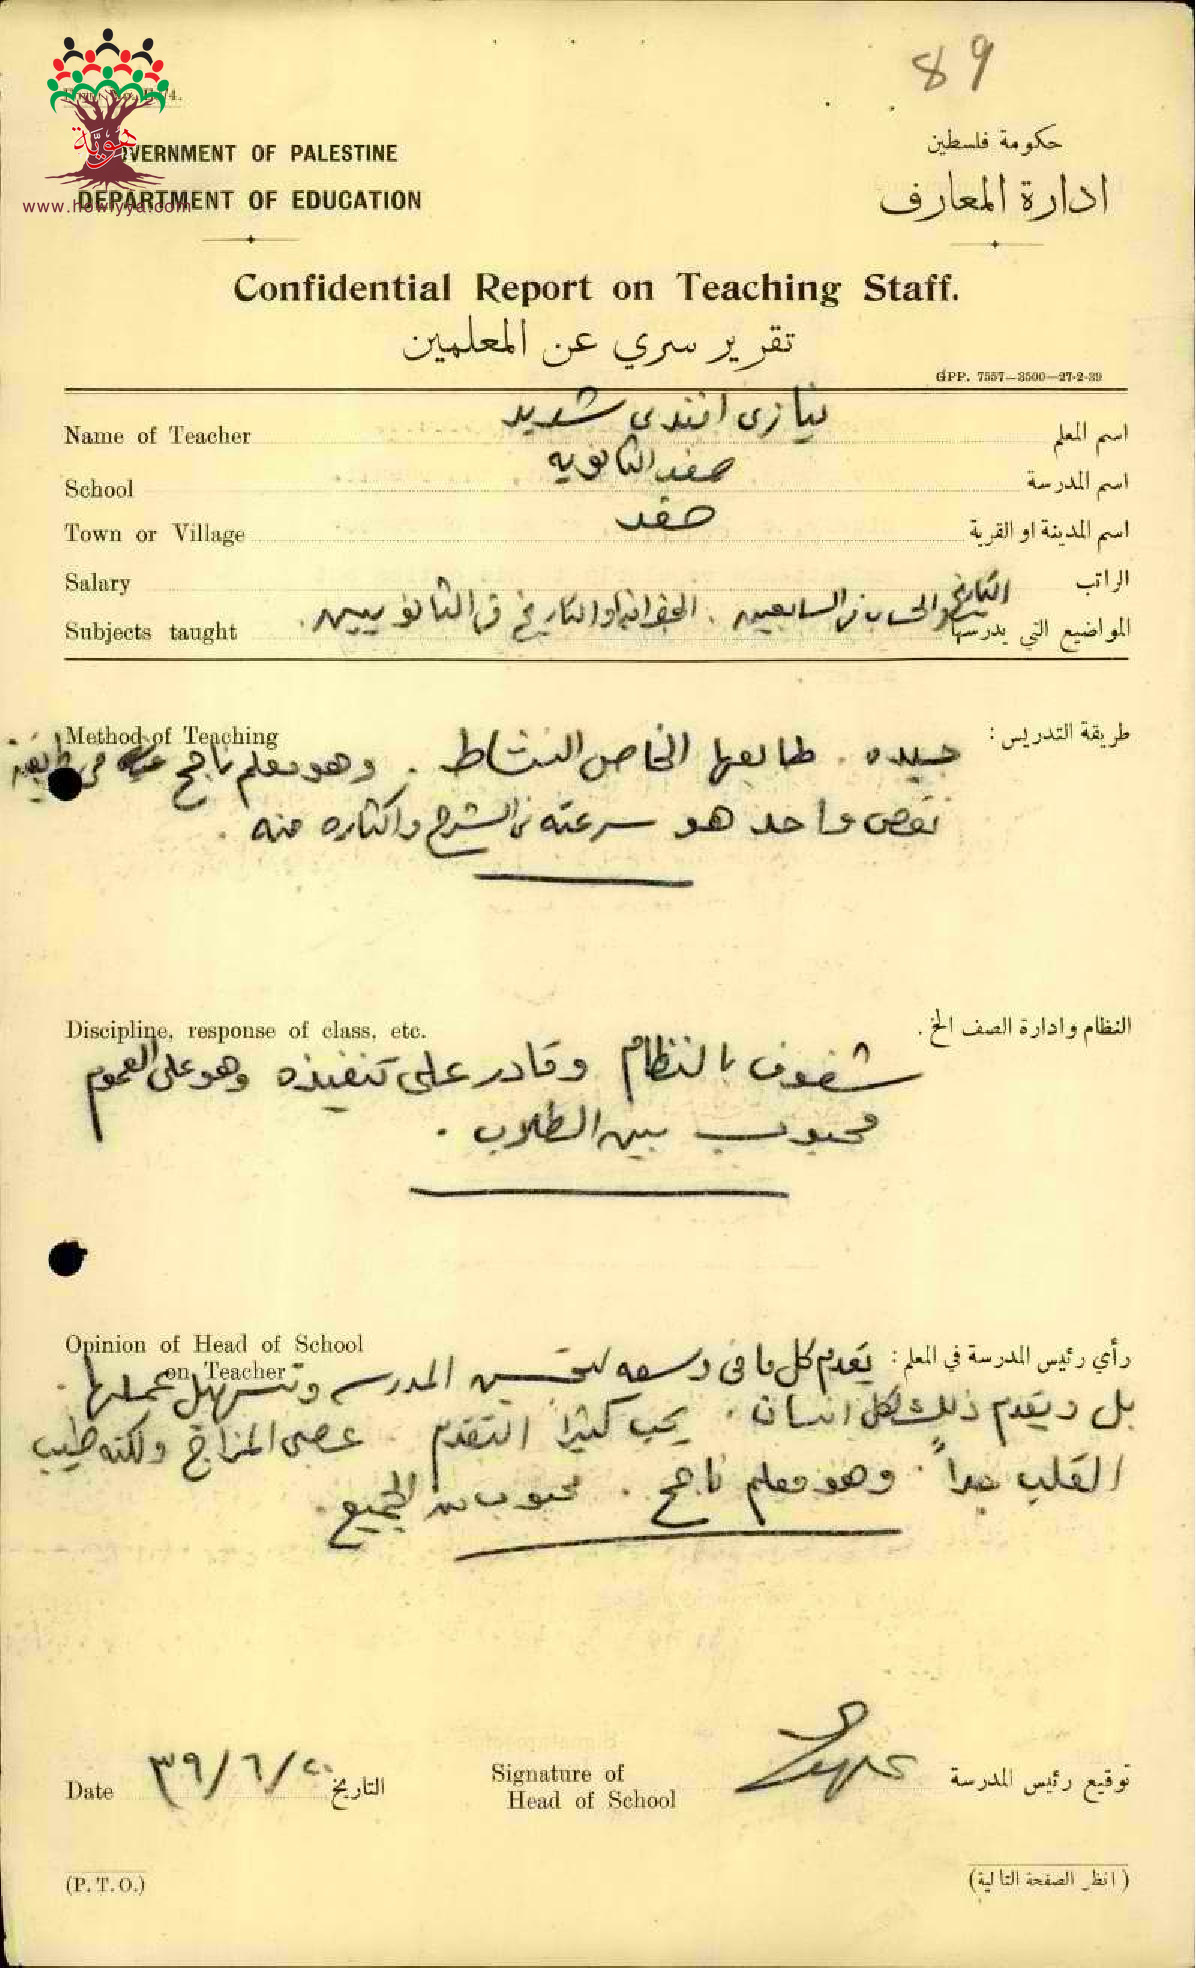 89
هوية
www.howiyya.com
GOVERNMENT OF PALESTINE
DEPARTMENT OF EDUCATION
حكومة فلسطين
ادارة المعارف
Confidential Report on Teaching Staff.
تقرير سري عن المعلمين
GPP. 7557—3500—27-2-39
Name of Teacher نيازي افندي شديد اسم المعلم
School صفد الثانويه اسم المدرسة
Town or Village صفد اسم المدينة او القرية
Salary الراتب
Subjects taught التاريخ والحساب في السابعين . الجغرافيا والتاريخ في الثانويين . المواضيع التي يدرسها
Method of Teaching طريقة التدريس :
جيده . طابعها الخاص النشاط . وهو معلم ناجح
نقص واحد هو سرعته في الشرح واكثاره منه .
Discipline, response of class, etc. النظام وادارة الصف الخ .
شغوف بالنظام وقادر على تنفيذه وهو على العموم
محبوب بين الطلاب .
Opinion of Head of School
on Teacher
رأي رئيس المدرسة في المعلم : يقدم كل ما في وسعه لتحسين المدرسه وتسهيل عملها .
بل ويقدم ذلك لكل انسان . يحب كثيرا التقدم . عصبي المزاج ولكنه طيب
القلب جداً . وهو معلم ناجح . محبوب من الجميع .
Date ٣٩/٦/٢٠ التاريخ
Signature of
Head of School
توقيع رئيس المدرسة
(P. T. O.)
( انظر الصفحة التالية )